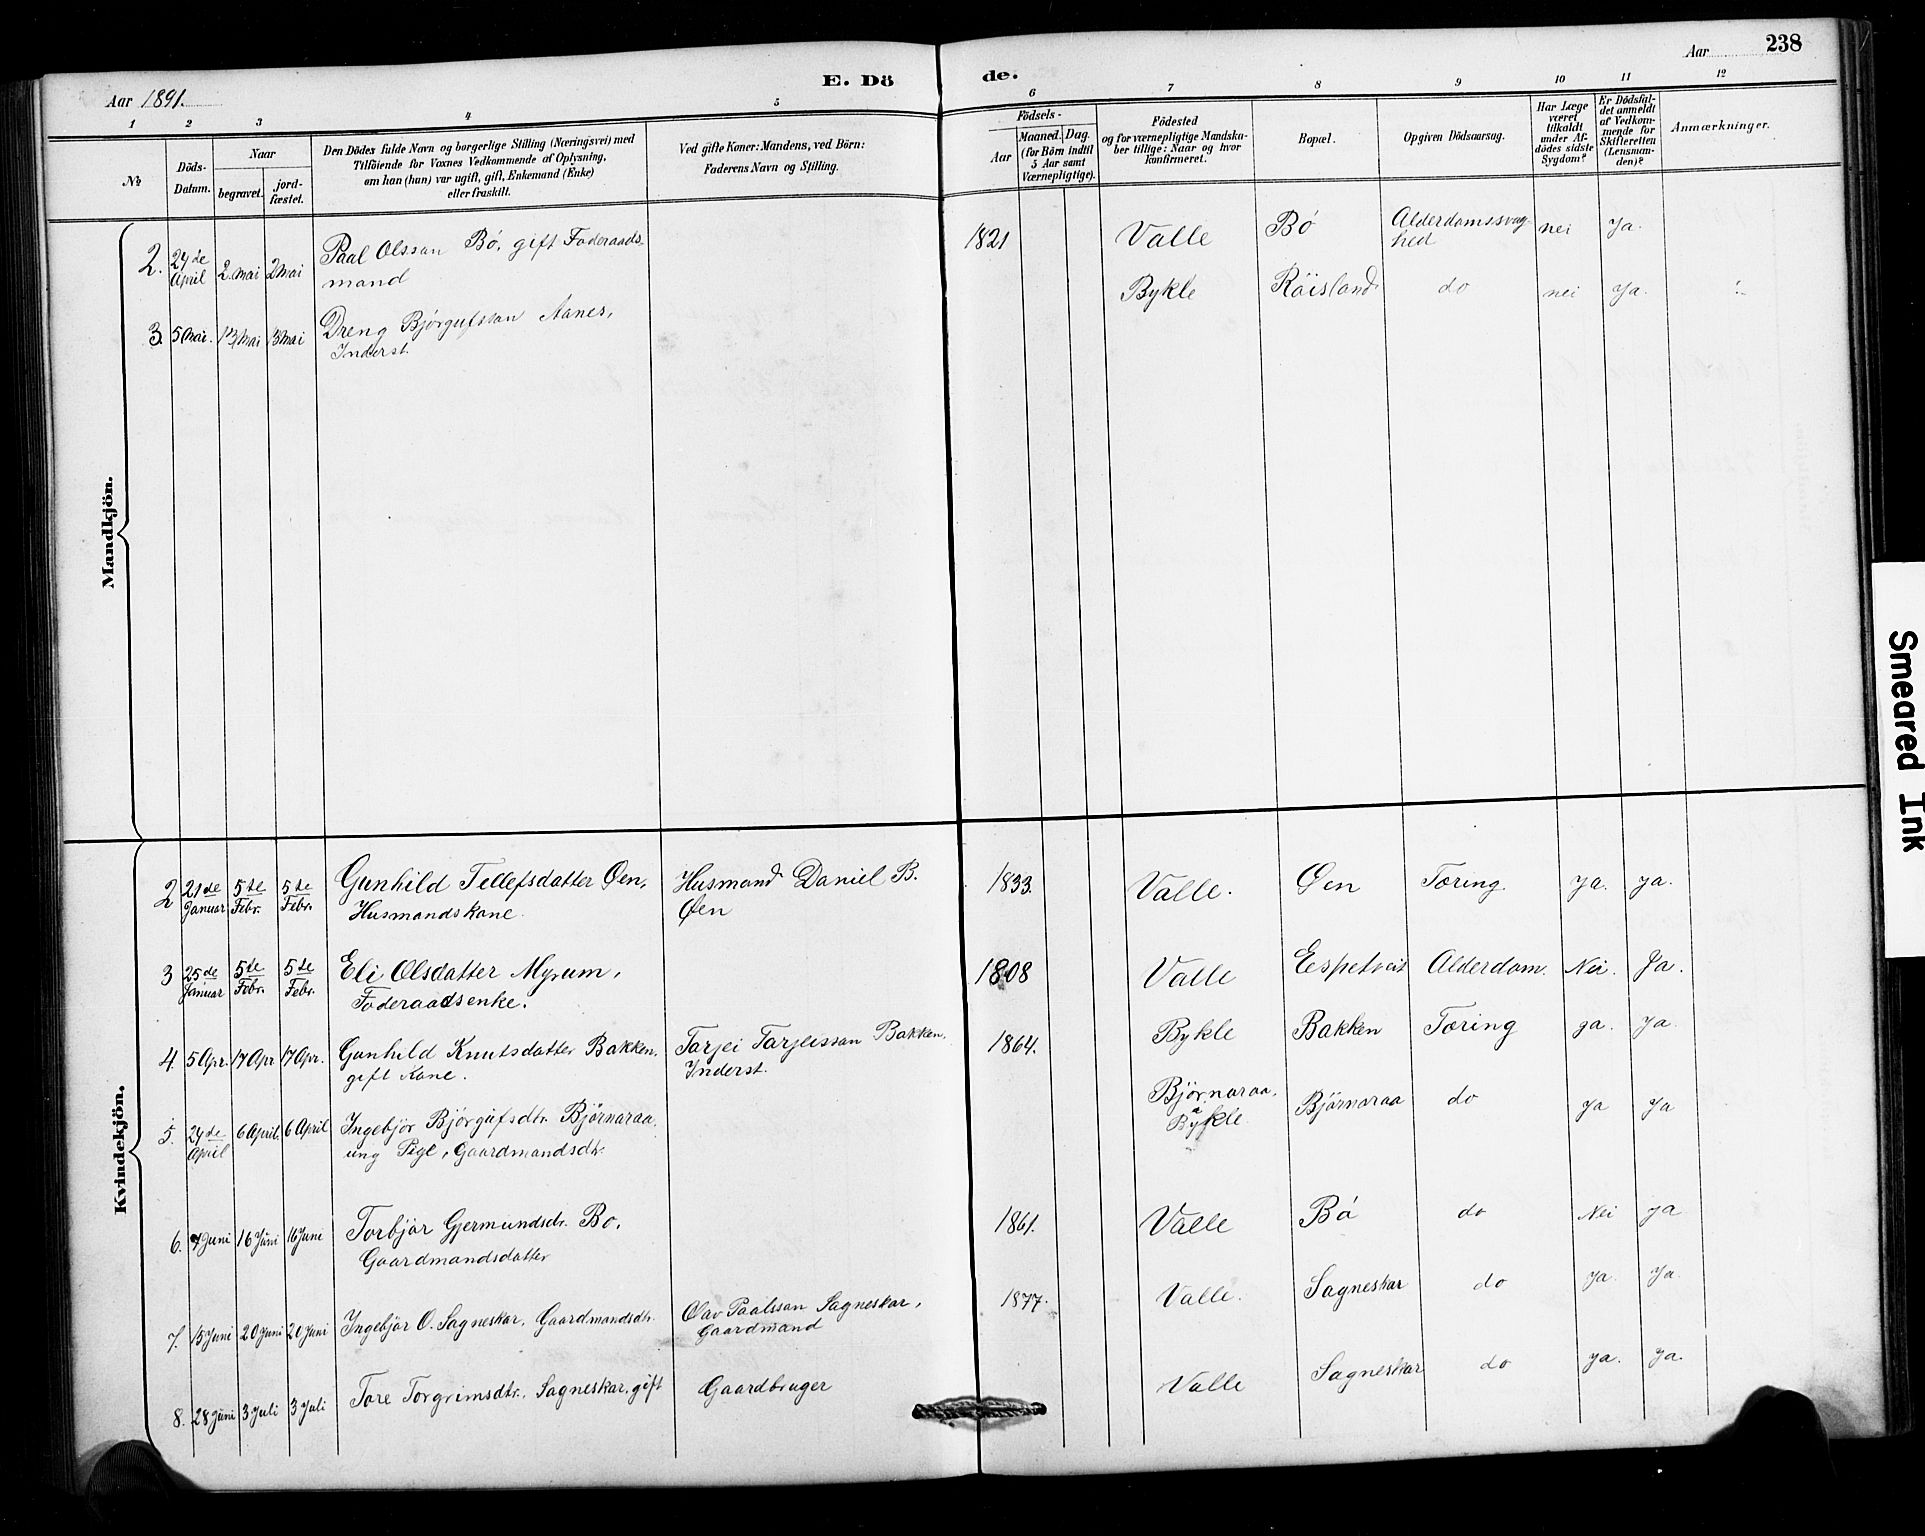 E. Döde.
238
Aar 1891.
Aar
1 2 3 4 5 6 7 8 9 10 11 12
№
Döds-Datum.
Naar
begravet.
jordfæstet.
Den Dödes fulde Navn og borgerlige Stilling (Næringsvei) med
Tilföiende for Voxnes Vedkommende af Oplysning,
om han (hun) var ugift, gift, Enkemand (Enke)
eller fraskilt.
Ved gifte Koner: Mandens, ved Börn:
Faderens Navn og Stilling.
Födsels-
Aar
Maaned. Dag.
(for Börn indtil
5 Aar samt
Værnepligtige).
Födested
og for værnepligtige Mandskaber tillige: Naar og hvor
konfirmeret.
Bopæl.
Opgiven Dödsaarsag.
Har Læge
været
tilkaldt
under Afdödes sidste
Sygdom?
Er Dödsfaldet anmeldt
af Vedkommende for
Skifteretten
(Lensmanden)?
Anmærkninger.
Mandkjön.
2. 27de April 2. mai 2 mai Paal Olsson Bó, gift Foderaadsmand 1821 Valle Bó Alderdomssvaghed nei Ja.
3. 5 mai. 13 mai 13 mai Dreng Bjórgufsson Aanes, Inderst. Bykle Röisland do nei Ja.
Kvindekjön.
2 21de Januar 5te Febr. 5te Febr. Gunhild Tellefsdatter Øen, Husmandskone. Husmand Daniel B. Øen 1833. Valle. Øen Tæring ja. ja.
3 25de Januar 5te Febr. 5te Febr. Eli Olsdatter Myrum, Foderaadsenke. 1808 Valle Espetveit Alderdom. Nei. Ja.
4. 5 Apr. 17 Apr 17 Apr. Gunhild Knutsdatter Bakken, gift Kone. Tarjei Tarjeisson Bakken, Inderst. 1864. Bykle Bakken Tæring ja. Ja.
5. 27de April 6 April. 6 April Ingebjór Bjórgufsdtr. Björnaraa, ung Pige, Gaardmandsdtr. Björnaraa, Bykle. Björnaraa do ja ja
6. 7 Juni 16 Juni 16 Juni Torbjör Gjermundsdr. Bo, Gaardmandsdatter 1861. Valle Bó do Nei ja
7. 13 Juni 20 Juni 20 Juni Ingebjör O. Sagneskar, Gaardmandsdtr. Olav Paalsson Sagneskar, Gaardmand 1877. Valle. Sagneskar do ja. ja.
8. 28 Juni 3 Juli 3 Juli Tore Torgrimsdtr. Sagneskar, gift Gaardbruger Valle Sagneskar do ja. ja.
Smeared Ink